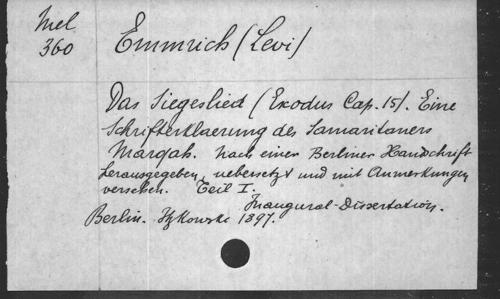 Mel
360
Emmrich (Levi)
Das Siegeslied (Exodus Cap. 15). Eine
Schrifterklaerung des Samaritaners
Marqah. Nach einer Berliner Handschrift
herausgegeben, uebersetzt und mit Anmerkungen
versehen. Teil I.
Inaugural-Dissertation.
Berlin. Itzkowski 1897.